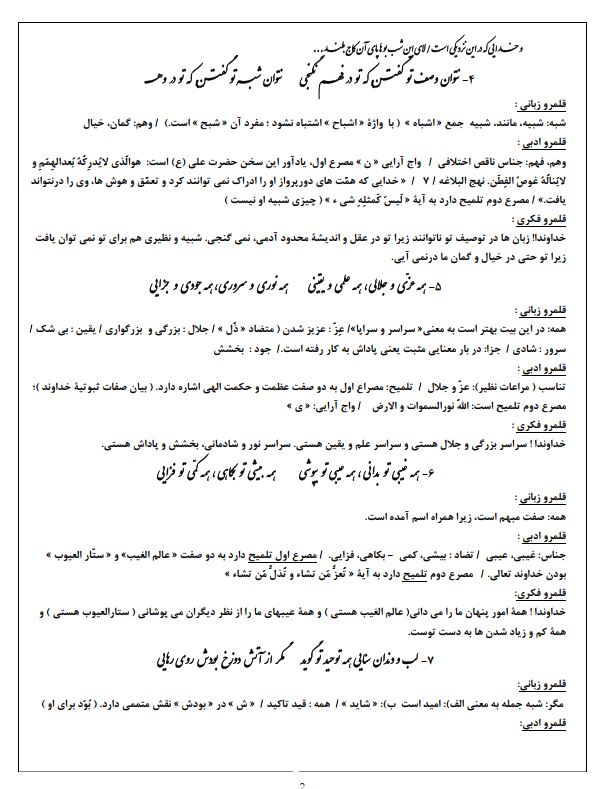 و خدایی که در این نزدیکی است / لای این شب بوها پای آن کاج بلند...
۴- نتوان وصف تو گفتن که تو در فهم نگنجی نتوان شبه تو گفتن که تو در وهم
قلمرو زبانی :
شبه: شبیه، مانند، شبیه جمع « اشباه » ( با واژهٔ « اشباح » اشتباه نشود ؛ مفرد آن « شبح » است.) / وهم: گمان، خیال
قلمرو ادبی :
وهم، فهم: جناس ناقص اختلافی / واج آرایی « ن » مصرع اول، یادآور این سخن حضرت علی (ع) است: هوالّذی لایُدرِکُهُ بُعدالهِمَم و
لایَنالُهُ غوصُ الفِطَن. نهج البلاغه / ۷ / « خدایی که همّت های دورپرواز او را ادراک نمی توانند کرد و تعمّق و هوش ها، وی را درنتواند
یافت.» / مصرع دوم تلمیح دارد به آیهٔ « لَیسَ کَمثلِهِ شی ء » ( چیزی شبیه او نیست )
قلمرو فکری :
خداوندا! زبان ها در توصیف تو ناتوانند زیرا تو در عقل و اندیشهٔ محدود آدمی، نمی گنجی. شبیه و نظیری هم برای تو نمی توان یافت
زیرا تو حتی در خیال و گمان ما درنمی آیی.
۵- همه عزّی و جلالی، همه علمی و یقینی همه نوری و سروری، همه جودی و جزایی
قلمرو زبانی :
همه: در این بیت بهتر است به معنی« سراسر و سراپا»/ عِزّ : عزیز شدن ( متضاد « ذُل » / جلال : بزرگی و بزرگواری / یقین : بی شک /
سرور : شادی / جزا: در بار معنایی مثبت یعنی پاداش به کار رفته است./ جود : بخشش
قلمرو ادبی :
تناسب ( مراعات نظیر): عزّ و جلال / تلمیح: مصراع اول به دو صفت عظمت و حکمت الهی اشاره دارد. ( بیان صفات ثبوتیهٔ خداوند )؛
مصرع دوم تلمیح است: اللهُ نورالسموات و الارض / واج آرایی: « ی »
قلمرو فکری :
خداوندا ! سراسر بزرگی و جلال هستی و سراسر علم و یقین هستی. سراسر نور و شادمانی، بخشش و پاداش هستی.
۶- همه غیبی تو بدانی، همه عیبی تو بپوشی همه بیشی تو بکاهی، همه کمّی تو فزایی
قلمرو زبانی :
همه: صفت مبهم است، زیرا همراه اسم آمده است.
قلمرو ادبی :
جناس: غیبی، عیبی / تضاد : بیشی، کمی – بکاهی، فزایی. / مصرع اول تلمیح دارد به دو صفت « عالم الغیب» و « ستّار العیوب »
بودن خداوند تعالی. / مصرع دوم تلمیح دارد به آیهٔ « تُعزُّ مَن تشاء و تُذلُّ مَن تشاء »
قلمرو فکری:
خداوندا ! همهٔ امور پنهان ما را می دانی( عالم الغیب هستی ) و همهٔ عیبهای ما را از نظر دیگران می پوشانی ( ستارالعیوب هستی ) و
همهٔ کم و زیاد شدن ها به دست توست.
۷- لب و دندان سنایی همه توحید تو گوید مگر از آتش دوزخ بودش روی رهایی
قلمرو زبانی:
مگر: شبه جمله به معنی الف): امید است ب): « شاید » / همه : قید تاکید / « ش » در « بودش » نقش متممی دارد. ( بُوَد برای او )
قلمرو ادبی:
2